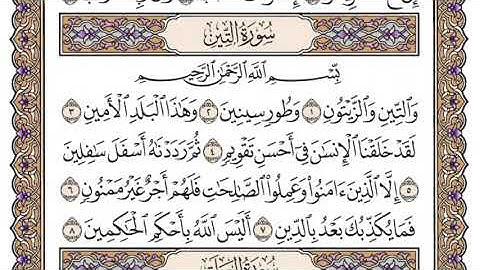 سُورَةُ التِّينِ
بِسْمِ اللَّهِ الرَّحْمَٰنِ الرَّحِيمِ
وَالتِّينِ وَالزَّيْتُونِ ١ وَطُورِ سِينِينَ ٢ وَهَٰذَا الْبَلَدِ الْأَمِينِ ٣
لَقَدْ خَلَقْنَا الْإِنسَٰنَ فِىٓ أَحْسَنِ تَقْوِيمٍ ٤ ثُمَّ رَدَدْنَٰهُ أَسْفَلَ سَٰفِلِينَ
٥ إِلَّا الَّذِينَ ءَامَنُوا۟ وَعَمِلُوا۟ الصَّٰلِحَٰتِ فَلَهُمْ أَجْرٌ غَيْرُ مَمْنُونٍ ٦
فَمَا يُكَذِّبُكَ بَعْدُ بِالدِّينِ ٧ أَلَيْسَ اللَّهُ بِأَحْكَمِ الْحَٰكِمِينَ ٨